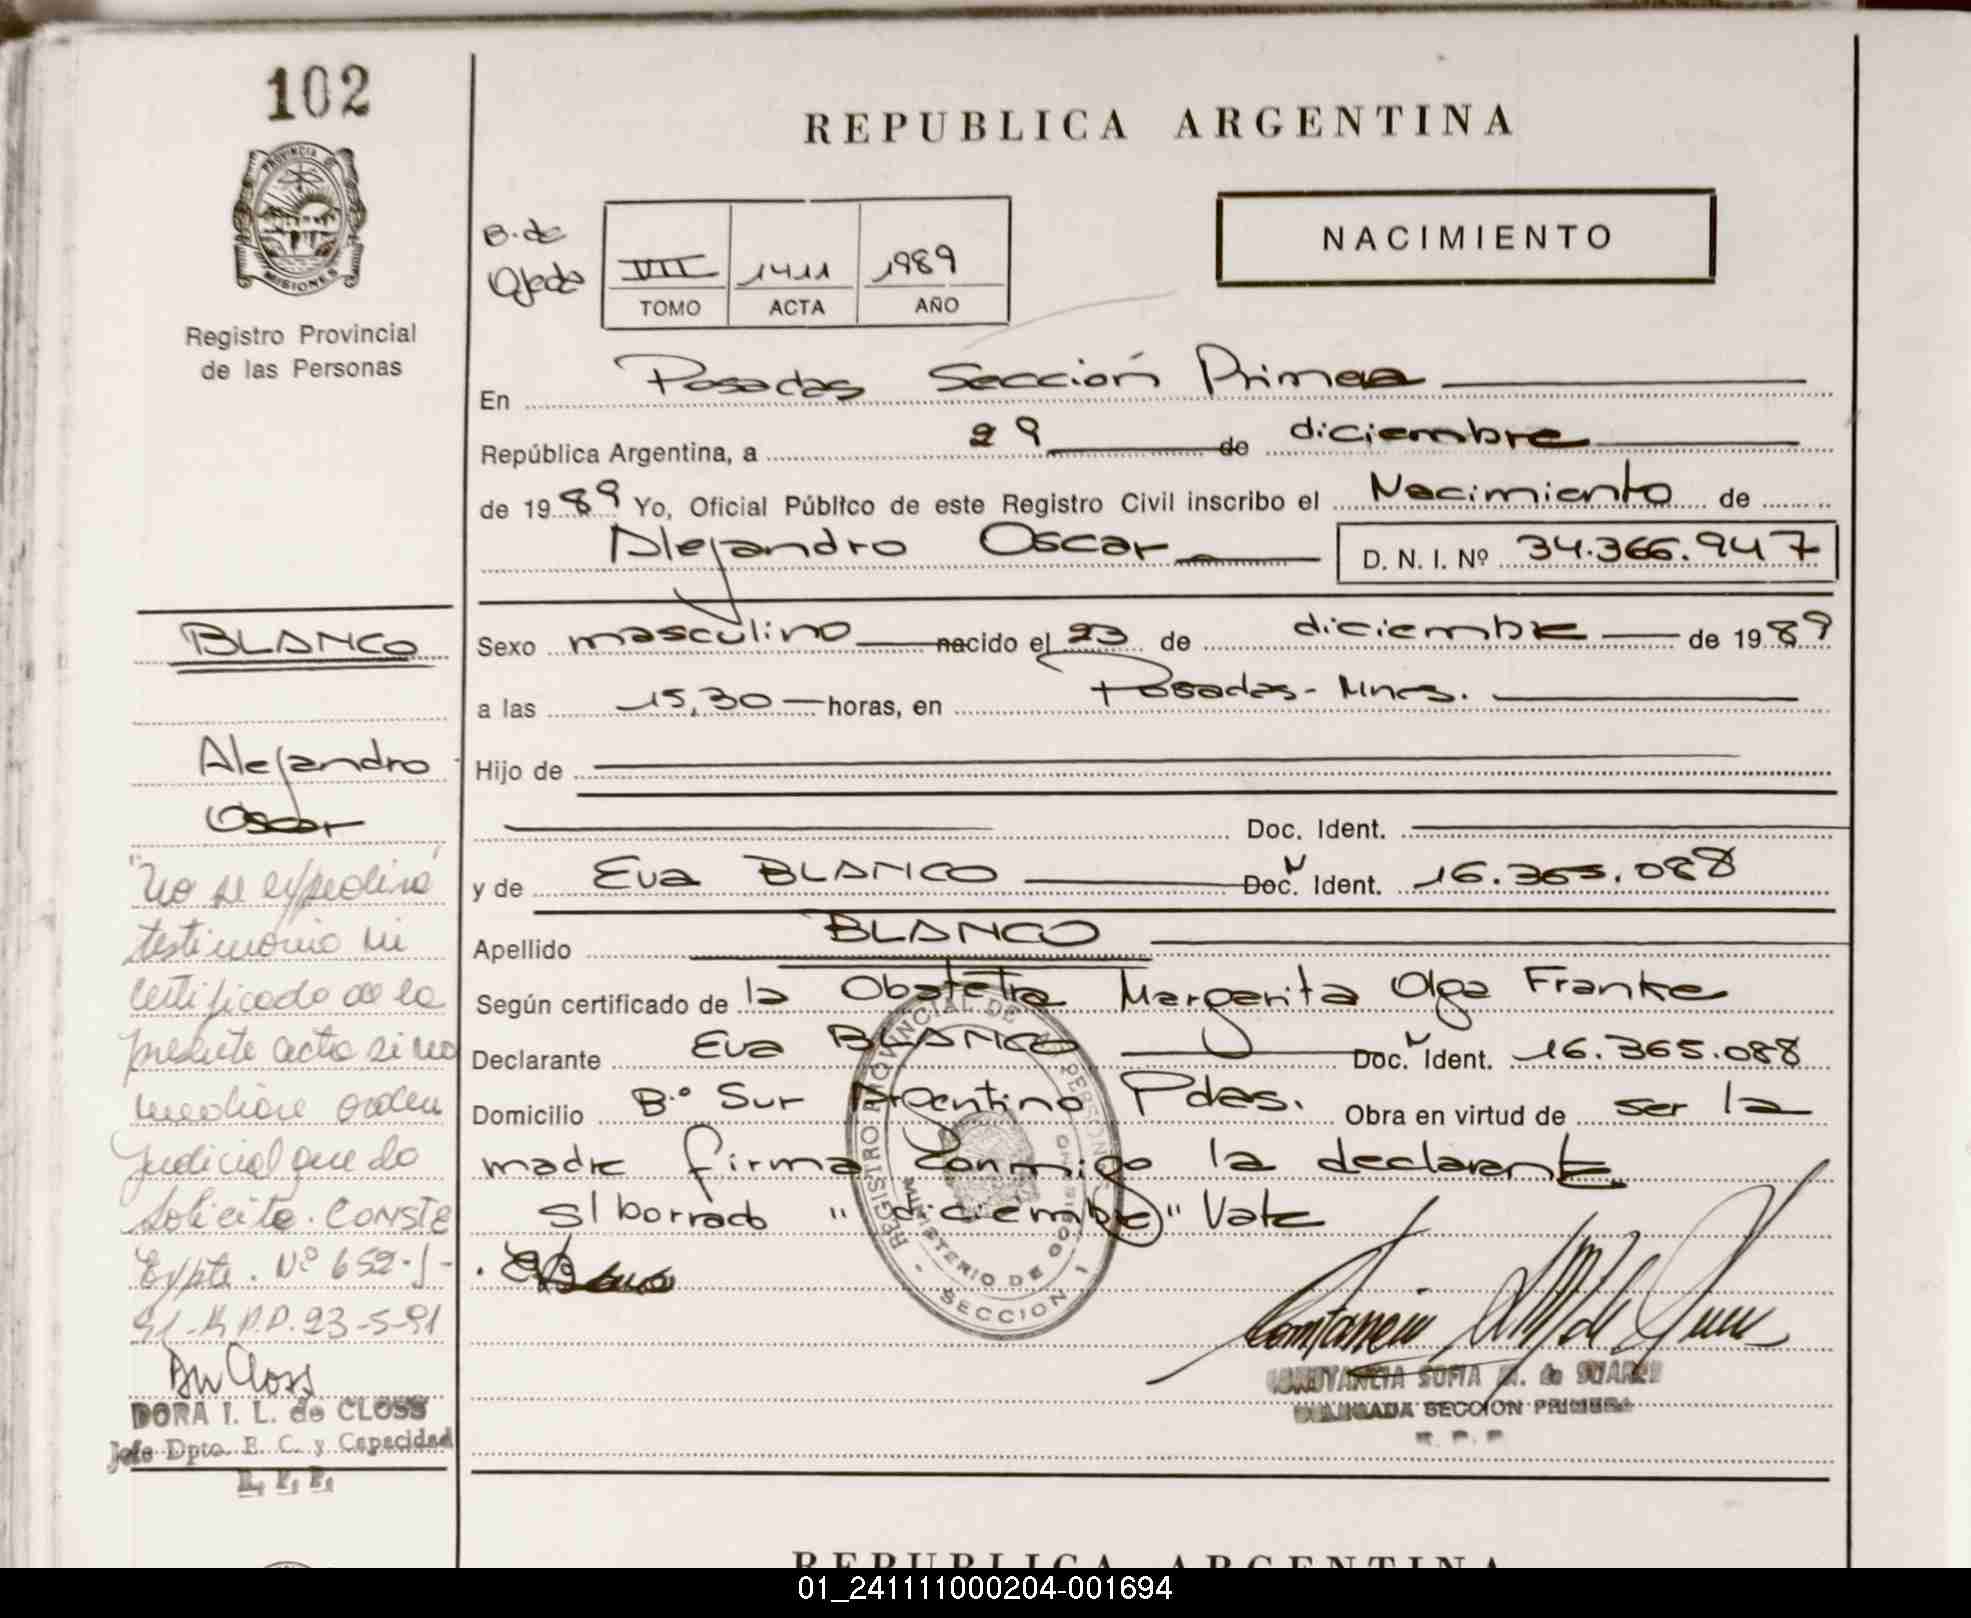 102
PROVINCIA DE
MISIONES
Registro Provincial
de las Personas
REPUBLICA ARGENTINA
B. de
Ojeda
VII 1411 1989
TOMO ACTA AÑO
NACIMIENTO
En Posadas Sección Primera
República Argentina, a 29 de diciembre
de 1989 Yo, Oficial Público de este Registro Civil inscribo el Nacimiento de
Alejandro Oscar D. N. I. Nº 34.366.947
Sexo masculino nacido el 23 de diciembre de 1989
a las 15,30 horas, en Posadas-Mnes.
Hijo de
Doc. Ident.
y de Eva BLANCO Doc. Ident. 16.365.088
Apellido BLANCO
Según certificado de la Obstetra Margarita Olga Franke
Declarante Eva BLANCO Doc. Ident. 16.365.088
Domicilio Bº Sur Argentino Pdas. Obra en virtud de ser la
madre firma conmigo la declarante
s/ borrado "diciembre" Vale
REGISTRO PROVINCIAL DE PERSONAS
MINISTERIO DE GOBIERNO
SECCION 1
CONSTANCIA SOFIA M. de SUAREZ
DELEGADA SECCION PRIMERA
R. P. P.
BLANCO
Alejandro
Oscar
"No se expedirá
testimonio ni
certificado de la
presente acta si no
mediare orden
judicial que lo
solicite. CONSTE
Expte. Nº 652-J-
91-R.P.P. 23-5-91
DORA I. L. de CLOSS
Jefe Dpto. E. C. y Capacidad
R. P. P.
REPUBLICA ARGENTINA
01_241111000204-001694